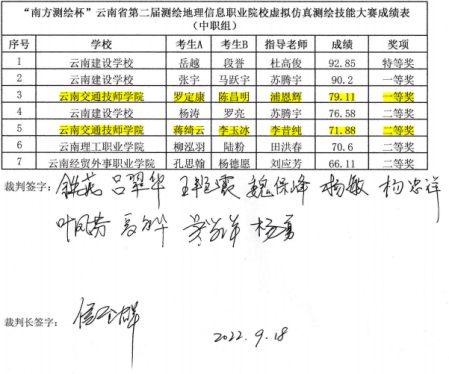 “南方测绘杯”云南省第二届测绘地理信息职业院校虚拟仿真测绘技能大赛成绩表
（中职组）
序号 学校 考生A 考生B 指导老师 成绩 奖项
1 云南建设学校 岳越 段誉 杜高俊 92.85 特等奖
2 云南建设学校 张宇 马跃宇 苏腾宇 90.2 一等奖
3 云南交通技师学院 罗定康 陈昌明 浦恩辉 79.11 一等奖
4 云南建设学校 杨涛 罗亮 苏腾宇 76.58 二等奖
5 云南交通技师学院 蒋绮云 李玉冰 李昔纯 71.88 二等奖
6 云南理工职业学院 柳泓羽 陆粉 田洪春 70.6 二等奖
7 云南经贸外事职业学院 孔思翰 杨德愿 刘应芳 66.11 二等奖
裁判签字： 吕翠华 魏保峰 杨敏
杨勇
裁判长签字：
2022.9.18